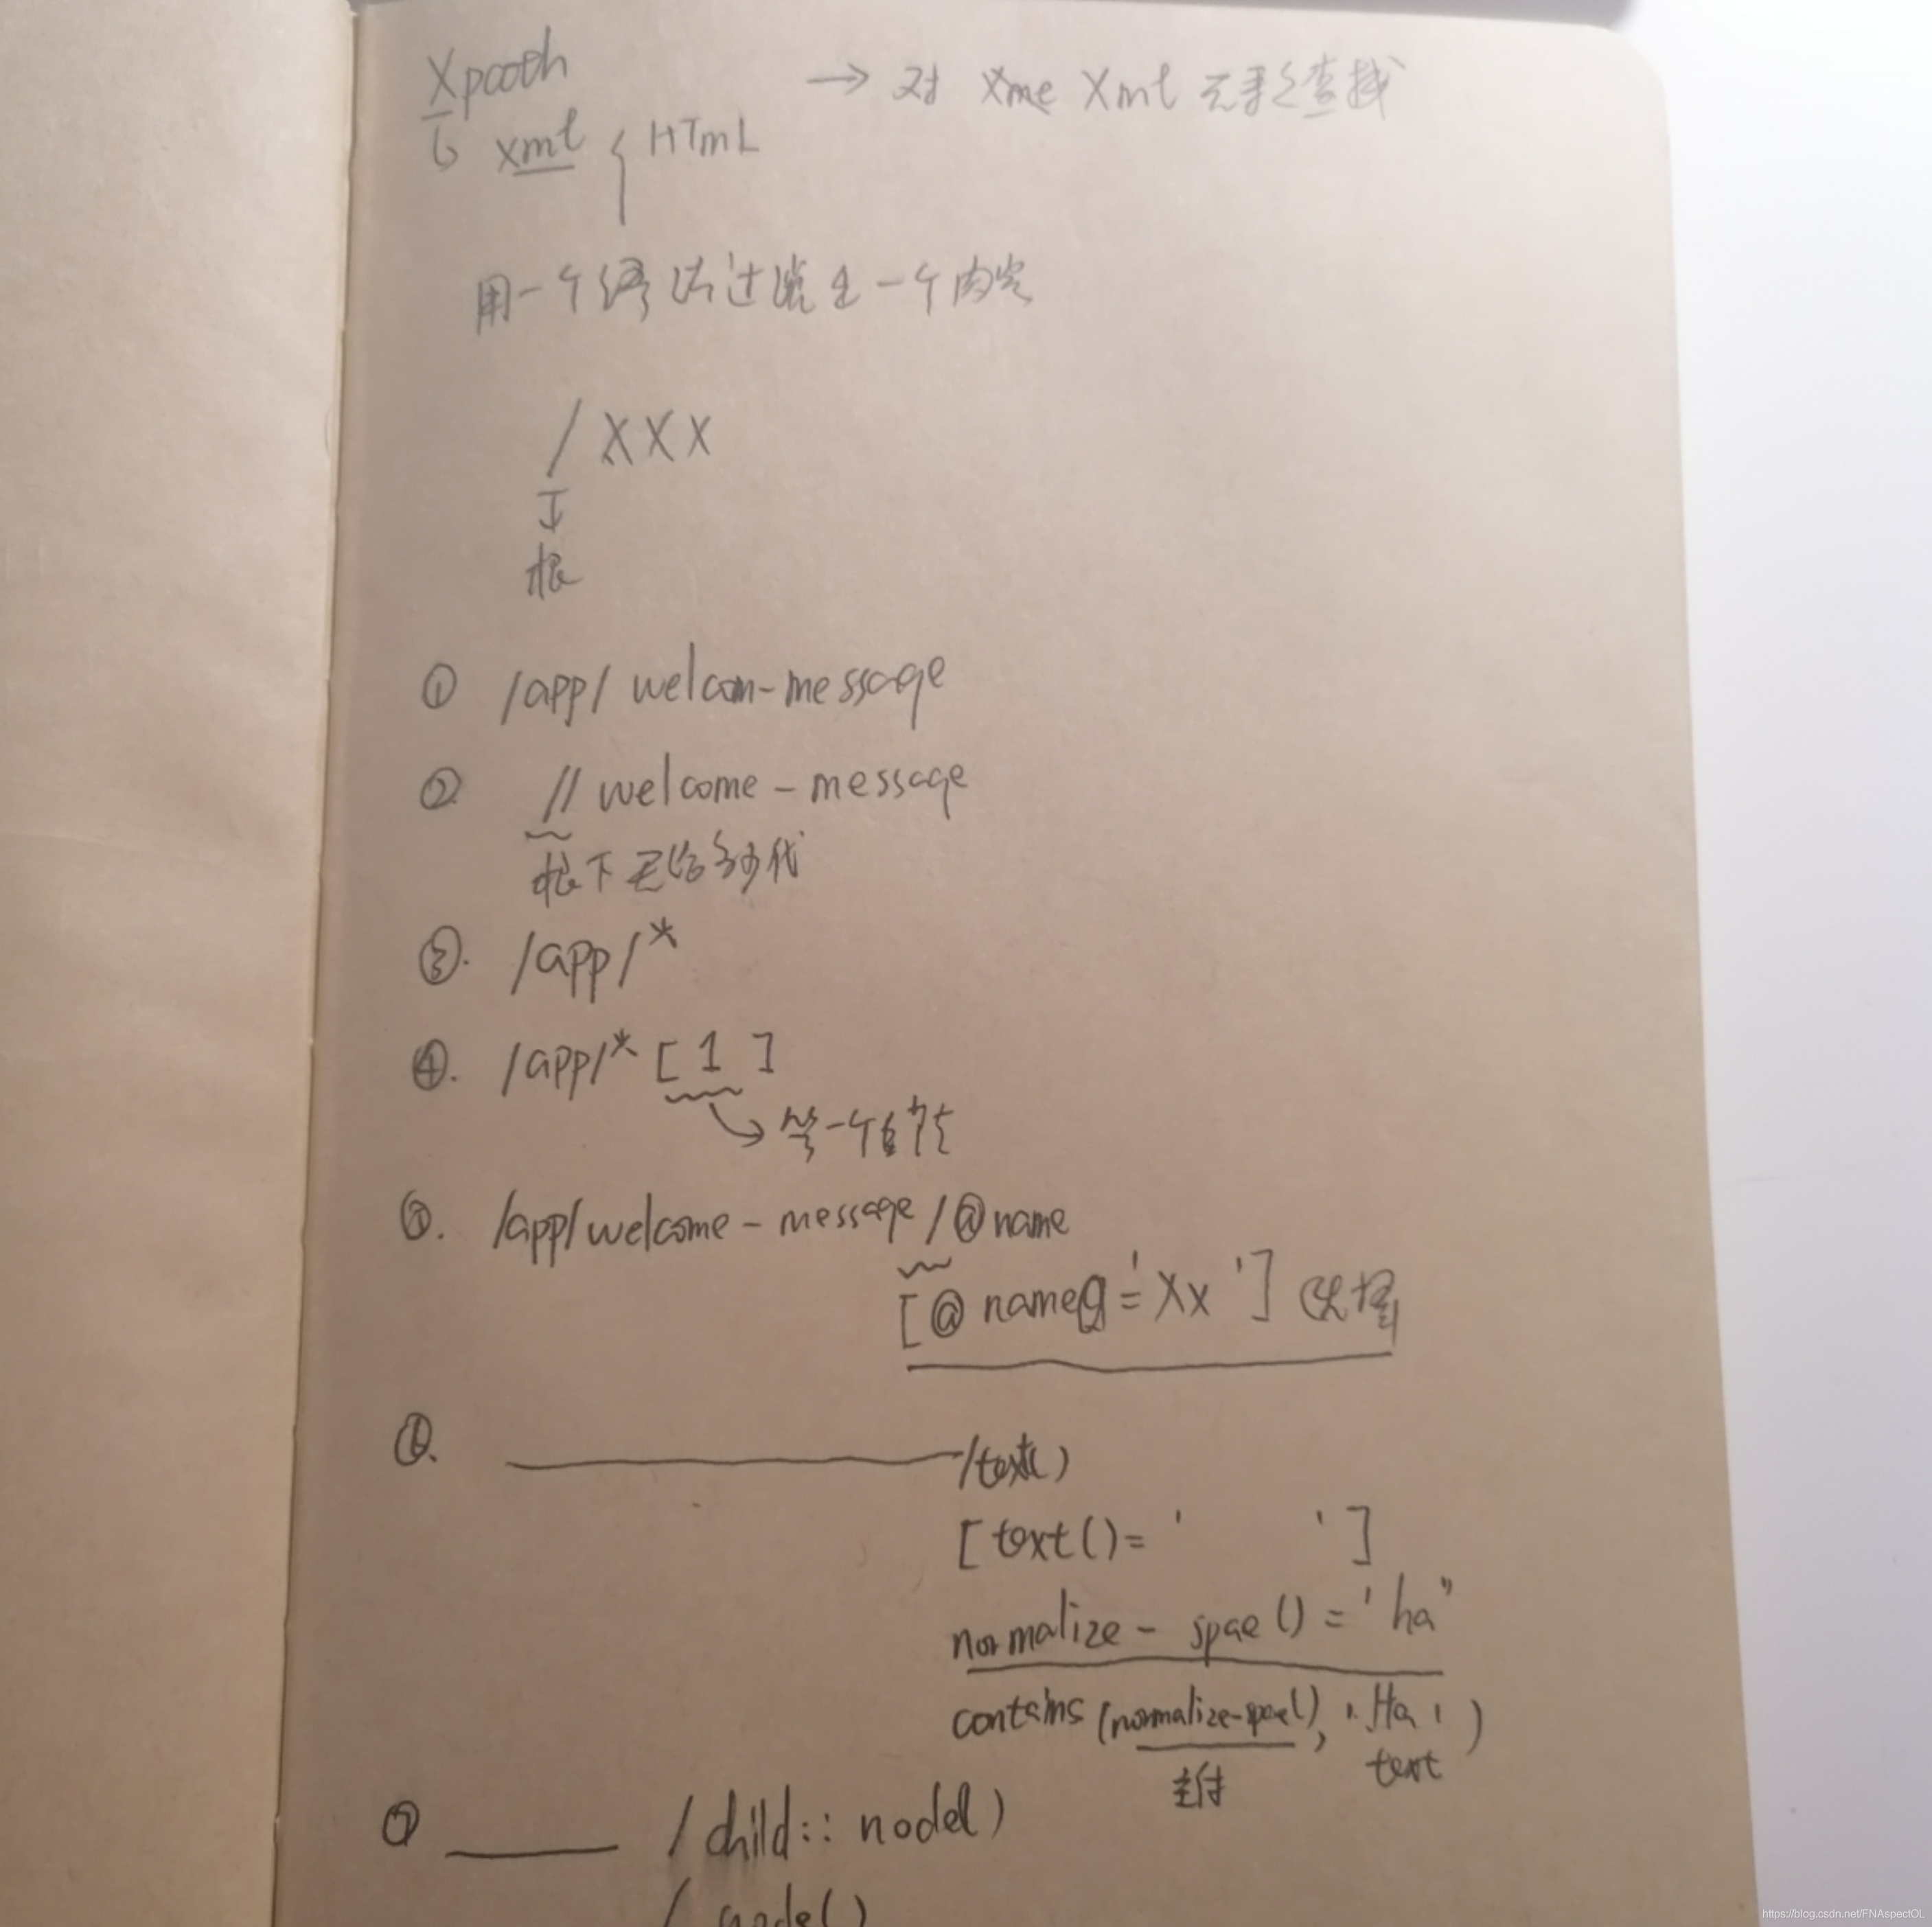 Xpath → 对 Xme Xml 元素之查找
↳ xml { HTmL
用一个语法过滤出一个内容
/ X X X
↓
根
① /app/ welcom-message
② // welcome - message
根下无论多少代
③. /app/*
④. /app/* [ 1 ]
→ 第一个
⑤. /app/welcome - message / @ name
[ @ name = 'Xx ' ] 选择
⑥. ———— /text()
[ text() = ' ' ]
normalize - spae () = ' ha"
contains (normalize-spae(), ' Ha ' )
text
⑦ ____ / child:: node()
/ node()
https://blog.csdn.net/FNAspectOL